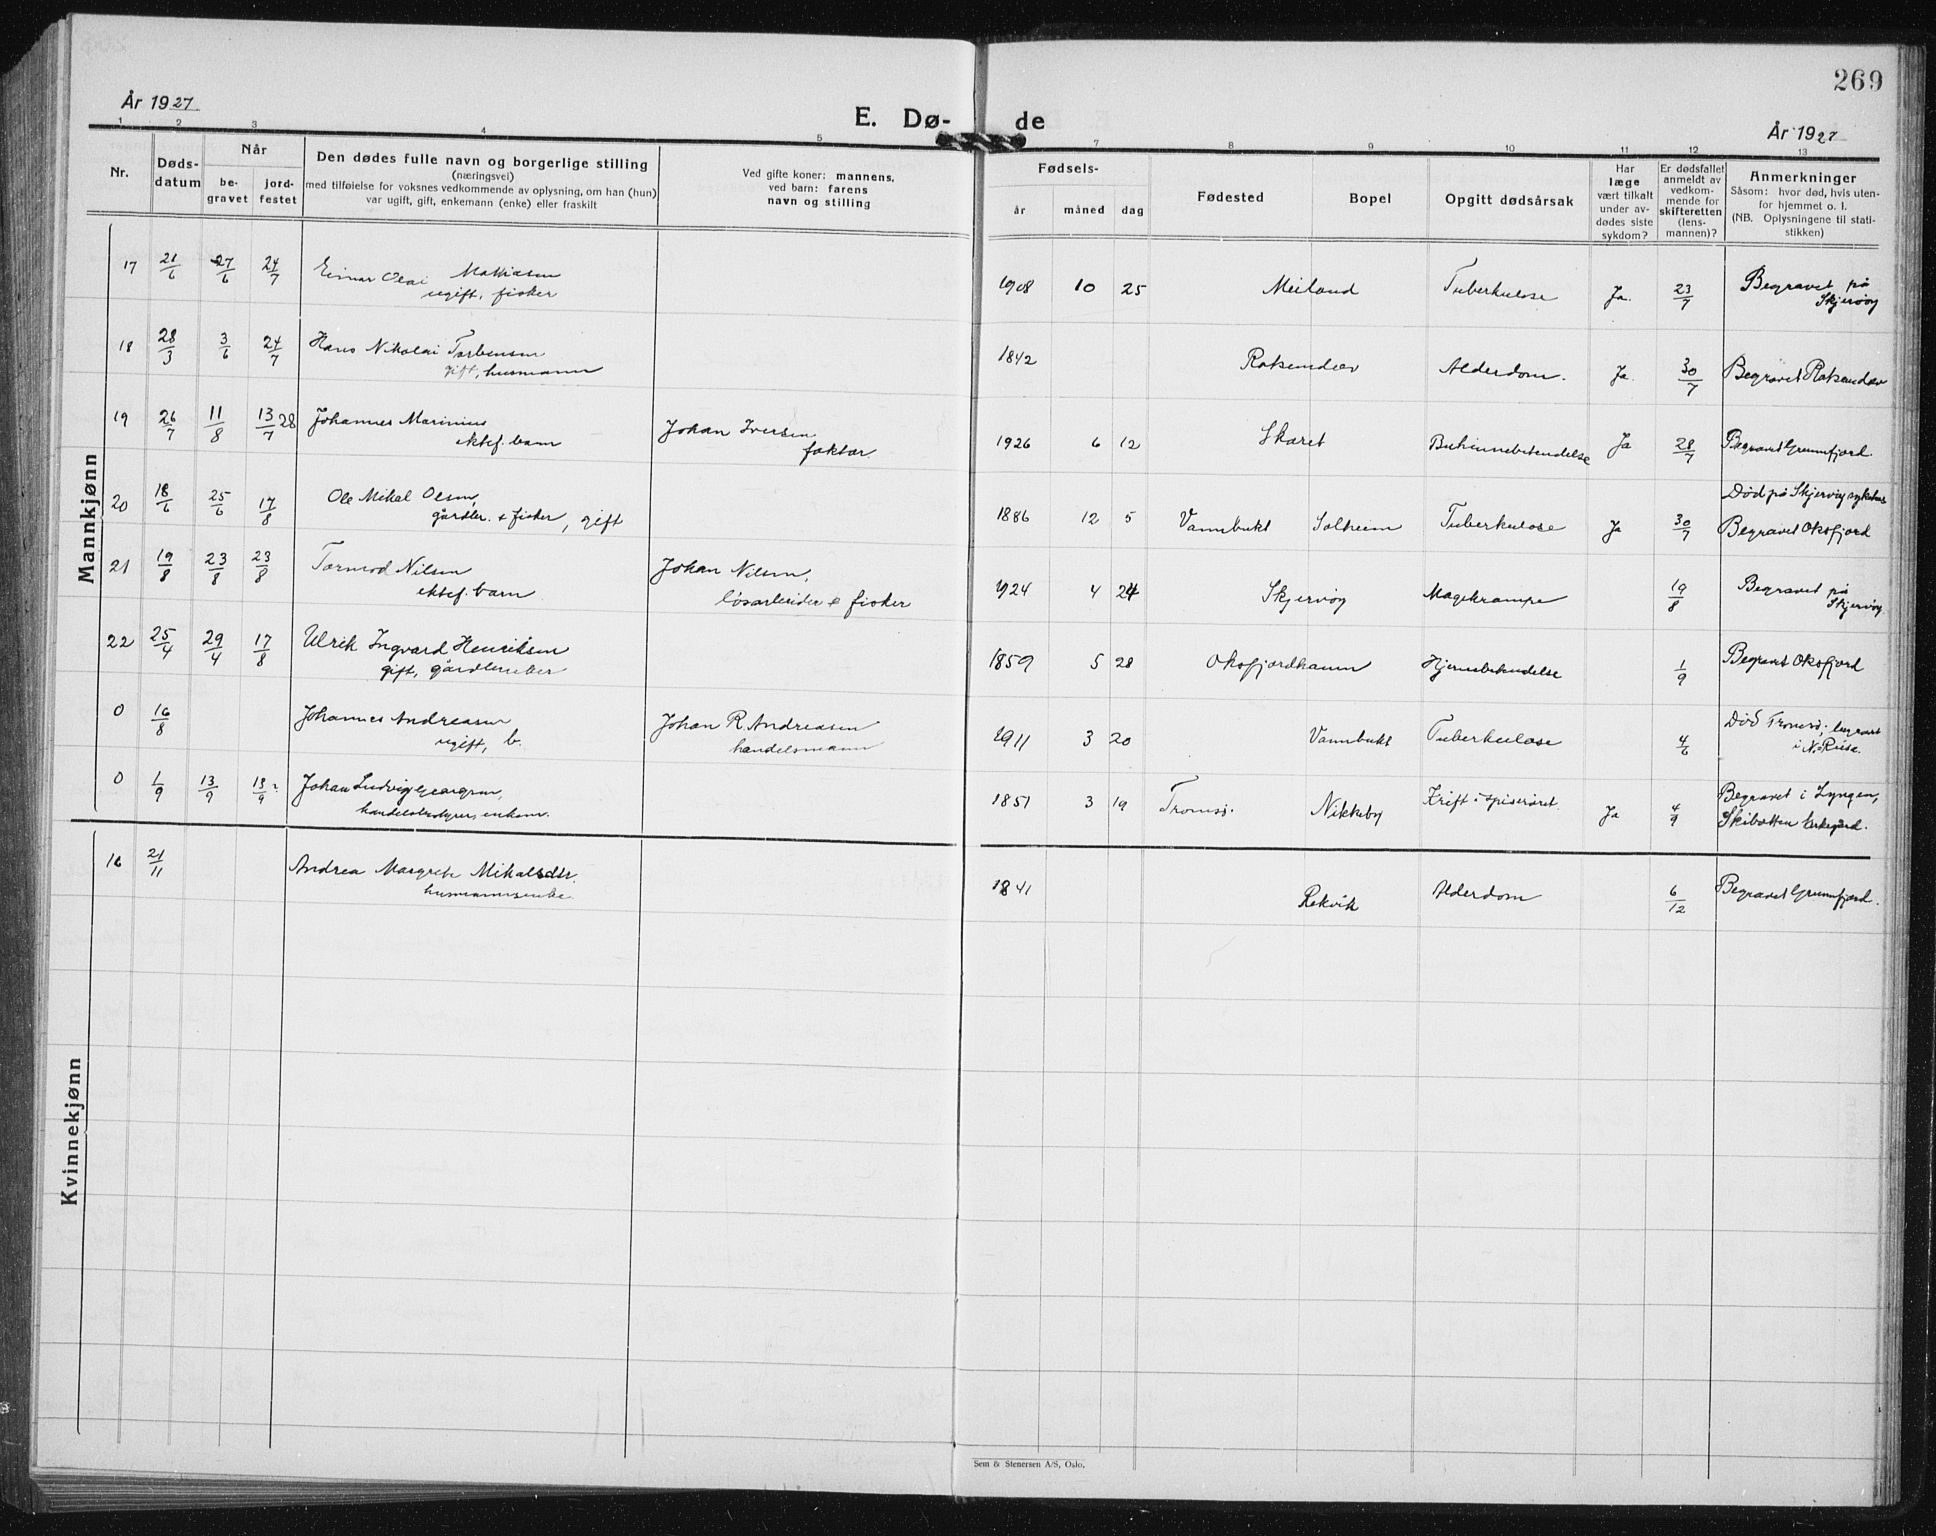 269
År 1927
E. Dø- de
År 1927
1 2 3 4 5 7 8 9 10 11 12 13
Nr.
Døds-
datum
Når
be-
gravet
jord-
festet
Den dødes fulle navn og borgerlige stilling
(næringsvei)
med tilføielse for voksnes vedkommende av oplysning, om han (hun)
var ugift, gift, enkemann (enke) eller fraskilt
Ved gifte koner: mannens,
ved barn: farens
navn og stilling
Fødsels-
år måned dag
Fødested
Bopel
Opgitt dødsårsak
Har
læge
vært tilkalt
under av-
dødes siste
sykdom?
Er dødsfallet
anmeldt av
vedkom-
mende for
skifteretten
(lens-
mannen)?
Anmerkninger
Såsom: hvor død, hvis uten-
for hjemmet o. l.
(NB. Oplysningene til stati-
stikken)
Mannkjønn
17 21/6 27/6 24/7 Einar Olai Mathiasen 1908 10 25 Meiland Tuberkulose Ja. 23/7 Begravet på
ugift, fisker Skjervøy
18 28/3 3/6 24/7 Hans Nikolai Torbensen 1842 Alderdom. Ja. 30/7 Begravet
gift, husmann
19 26/7 11/8 13/7 28 Johannes Marinius Johan Iversen 1926 6 12 Skaret Buhinnebetendelse Ja 28/7 Begravet Grunnfjord
ektef. barn faktor.
20 18/6 25/6 17/8 Ole Mikal Olsen, 1886 12 5 Vannbukt Solheim Tuberkulose Ja 30/7 Død på Skjervøy sykehus
gårdbr. & fisker, gift Begravet Oksfjord
21 19/8 23/8 23/8 Tormod Nilsen Johan Nilsen, 1924 4 24 Skjervøy Magekrampe 19/8 Begravet på
ektef. barn løsarbeider & fisker Skjervøy
22 25/4 29/4 17/8 Ulrik Ingvard Henriksen 1859 5 28 Oksfjordhamn Hjernebetendelse 1/9 Begravet Oksfjord
gift, gårdbruker
0 16/8 Johannes Andreasen Johan R. Andreasen 1911 3 20 Vannbukt Tuberkulose 4/6 Død Tromsø, begravet
ugift, b. handelsmann i N. Reisa.
0 1/9 13/9 13/9 ? Johan Ludvig Georgsen, 1851 3 19 Tromsø. Nikkeby Kreft i spiserøret. Ja 4/9 Begravet i Lyngen,
handelsbestyrer, enkem. Skibotten kirkegård.
Kvinnekjønn
16 21/11 Andrea Margrete Mikalsdtr. 1841 Rekvik Alderdom 6/12 Begravet Grunnfjord.
husmannsenke
Sem & Stenersen A/S, Oslo.